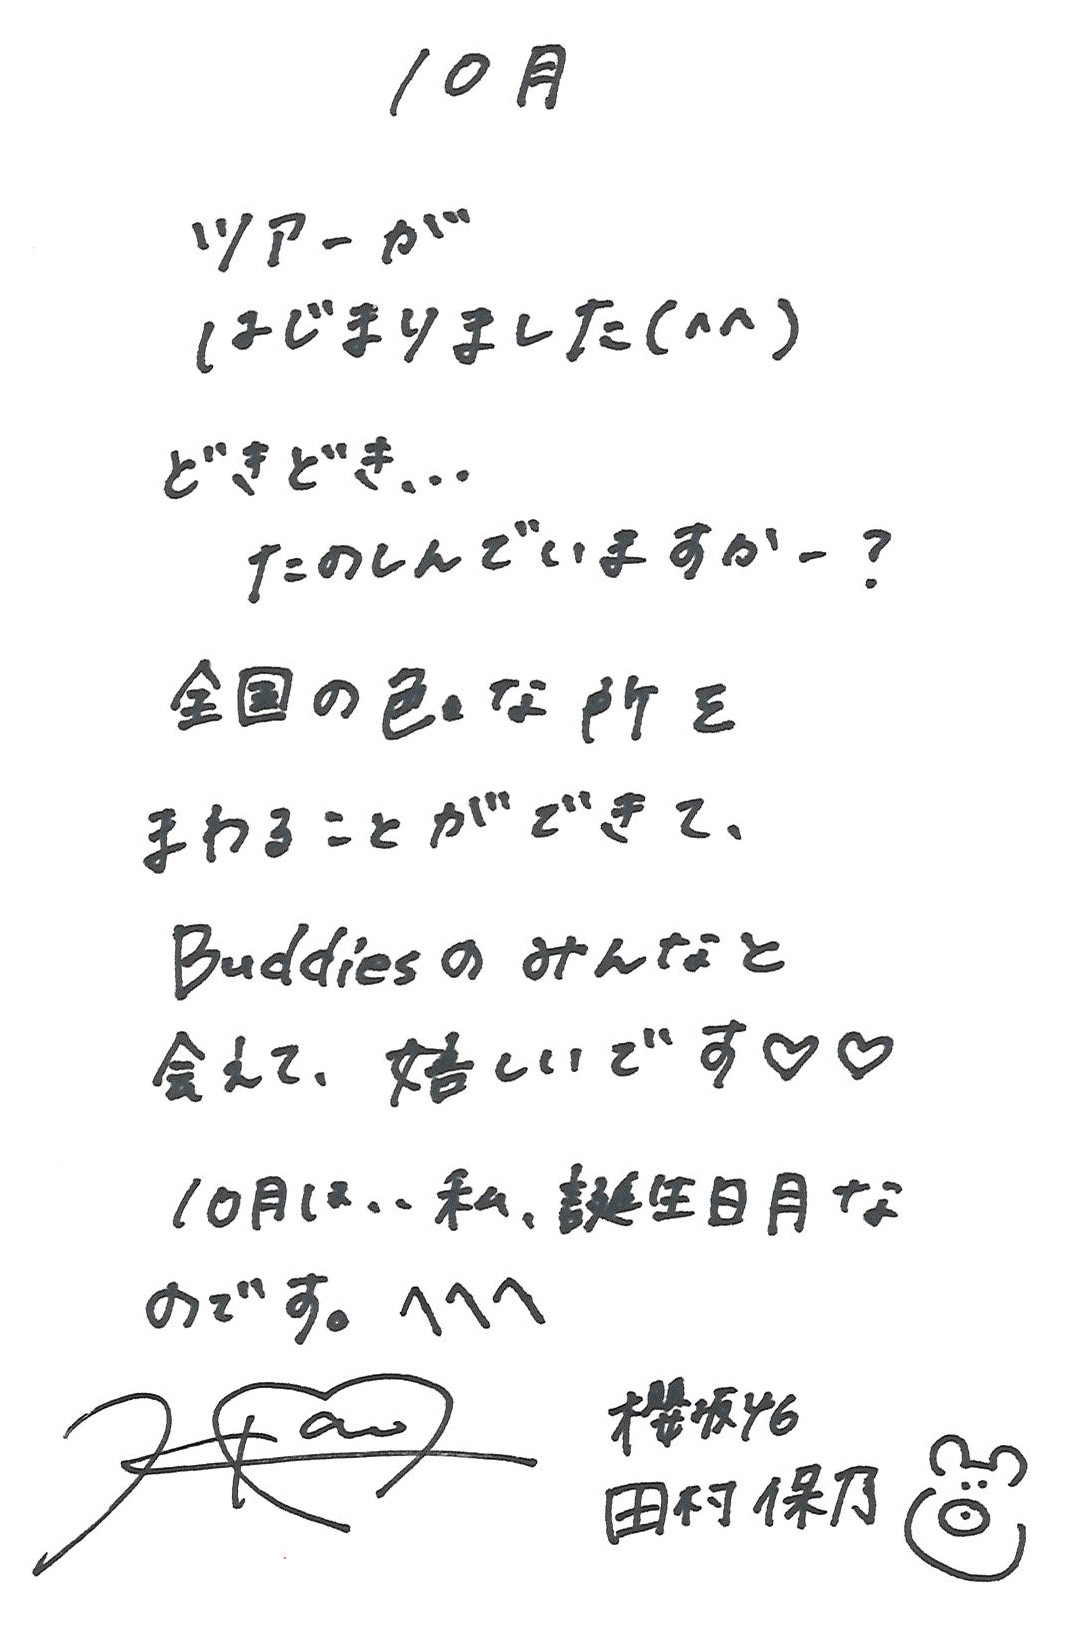 10月
ツアーが
はじまりました(^^)
どきどき...
たのしんでいますかー?
全国の色々な所を
まわることができて、
Buddiesのみんなと
会えて、嬉しいです♡♡
10月は..私、誕生日月な
のです。へへへ
櫻坂46
田村保乃